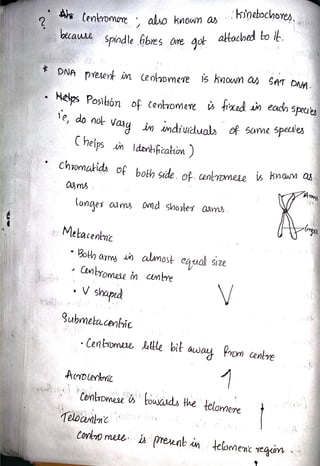 ? Centromere ; also known as Kinetochores,
because spindle fibres are got attached to it.
* DNA present in centromere is known as SAT DNA.
• Helps Position of centromere is fixed in each species
ie, do not vary in individuals of same species
(helps in Identification)
• Chromatids of both side of centromere is known as
arms.
longer arms and shorter arms.
Metacentric
• Both arms in almost equal size
• Centromere in centre
• V shaped
Submetacentric
• Centromere little bit away from centre
Acrocentric
Centromere is towards the telomere
Telocentric
Centromere is present in telomeric region.